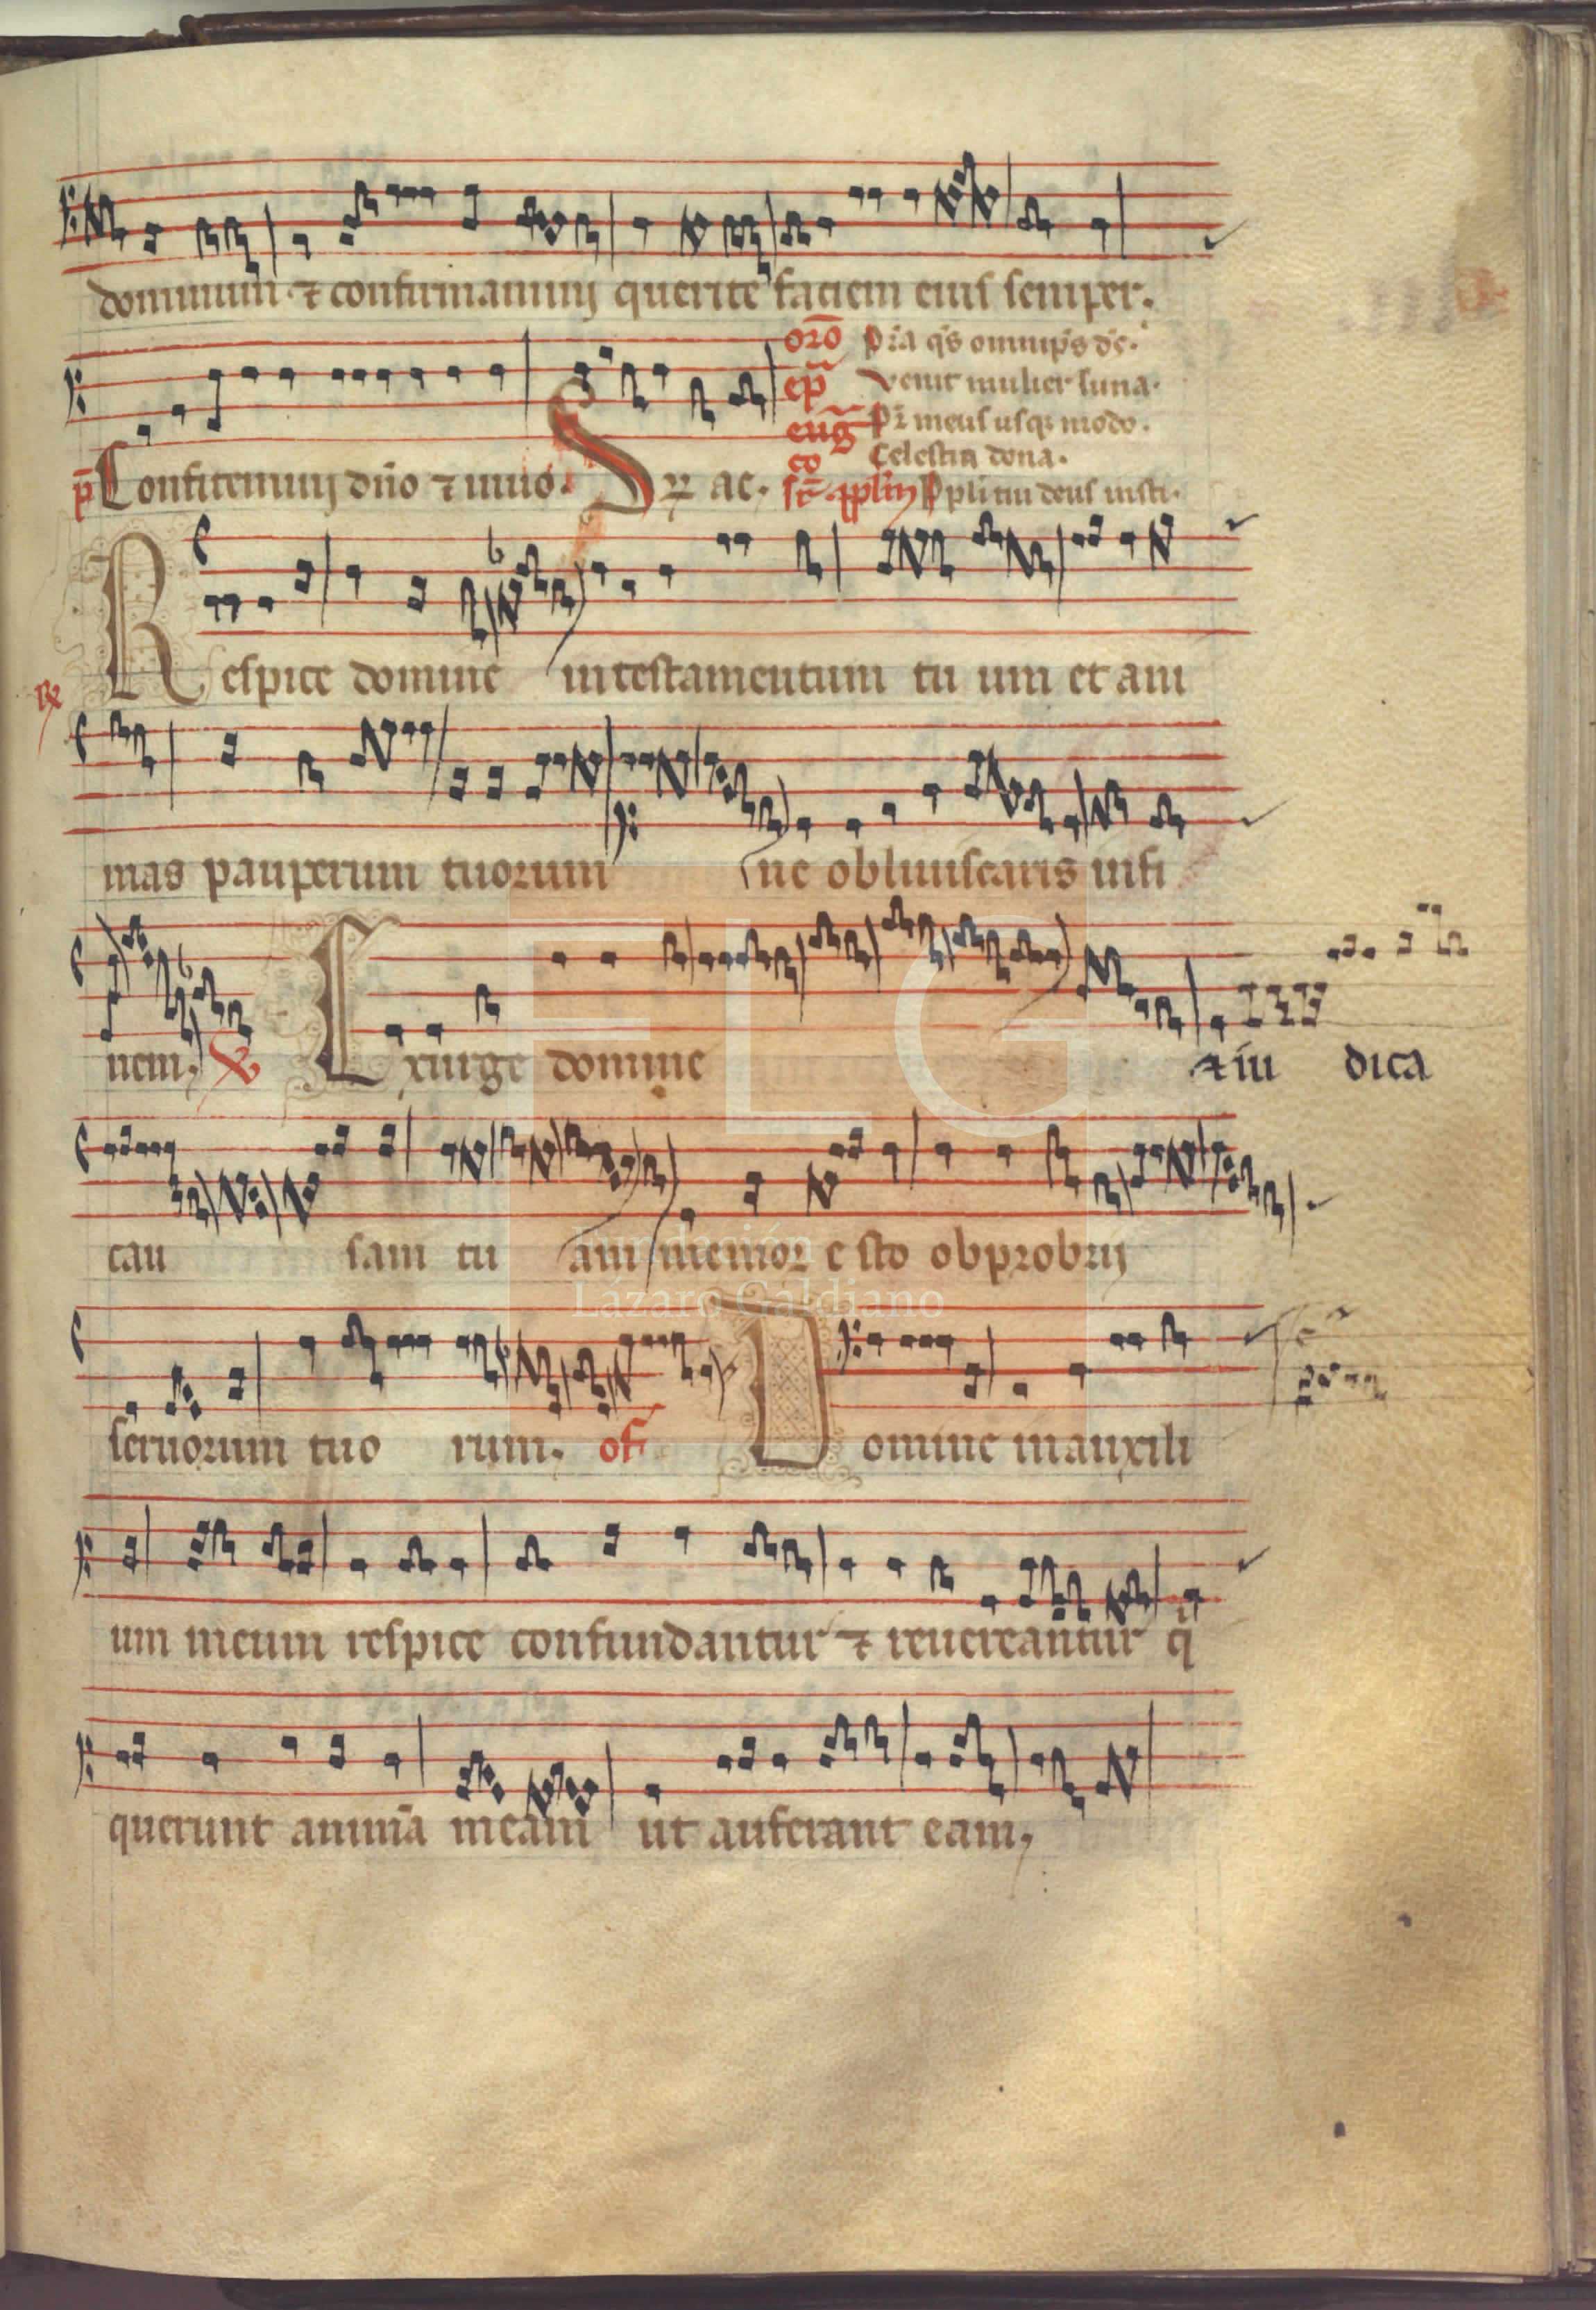 dominum ⁊ confirmamini querite faciem eius semper.
oro Pr̄a q̄s omnip̄s dē.
ep̄ Venit mulier suna.
eūg Pr̄ meus usq; modo.
co Celestia dona.
p̄ Confitemini dn̄o ⁊ inuo. S ꝶ ac. sr̄ ap̄lm Ppli tui deus insti.
Respice domine in testamentum tu um et ani
℟
mas pauperum tuorum ne obliuiscaris in fi
nem. ℣ Exurge domine ⁊ iu dica
cau sam tu am memor e sto obprobrij
seruorum tuo rum. of Domine in auxili
um meum respice confundantur ⁊ reuereantur q̄
querunt animā meam ut auferant eam.
FLG
Fundación
Lázaro Galdiano